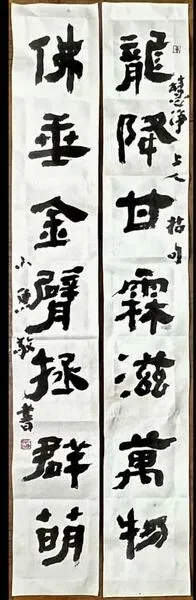 龍降甘霖滋萬物
慧淨上人
佛垂金臂拯群萌
小魚敬書